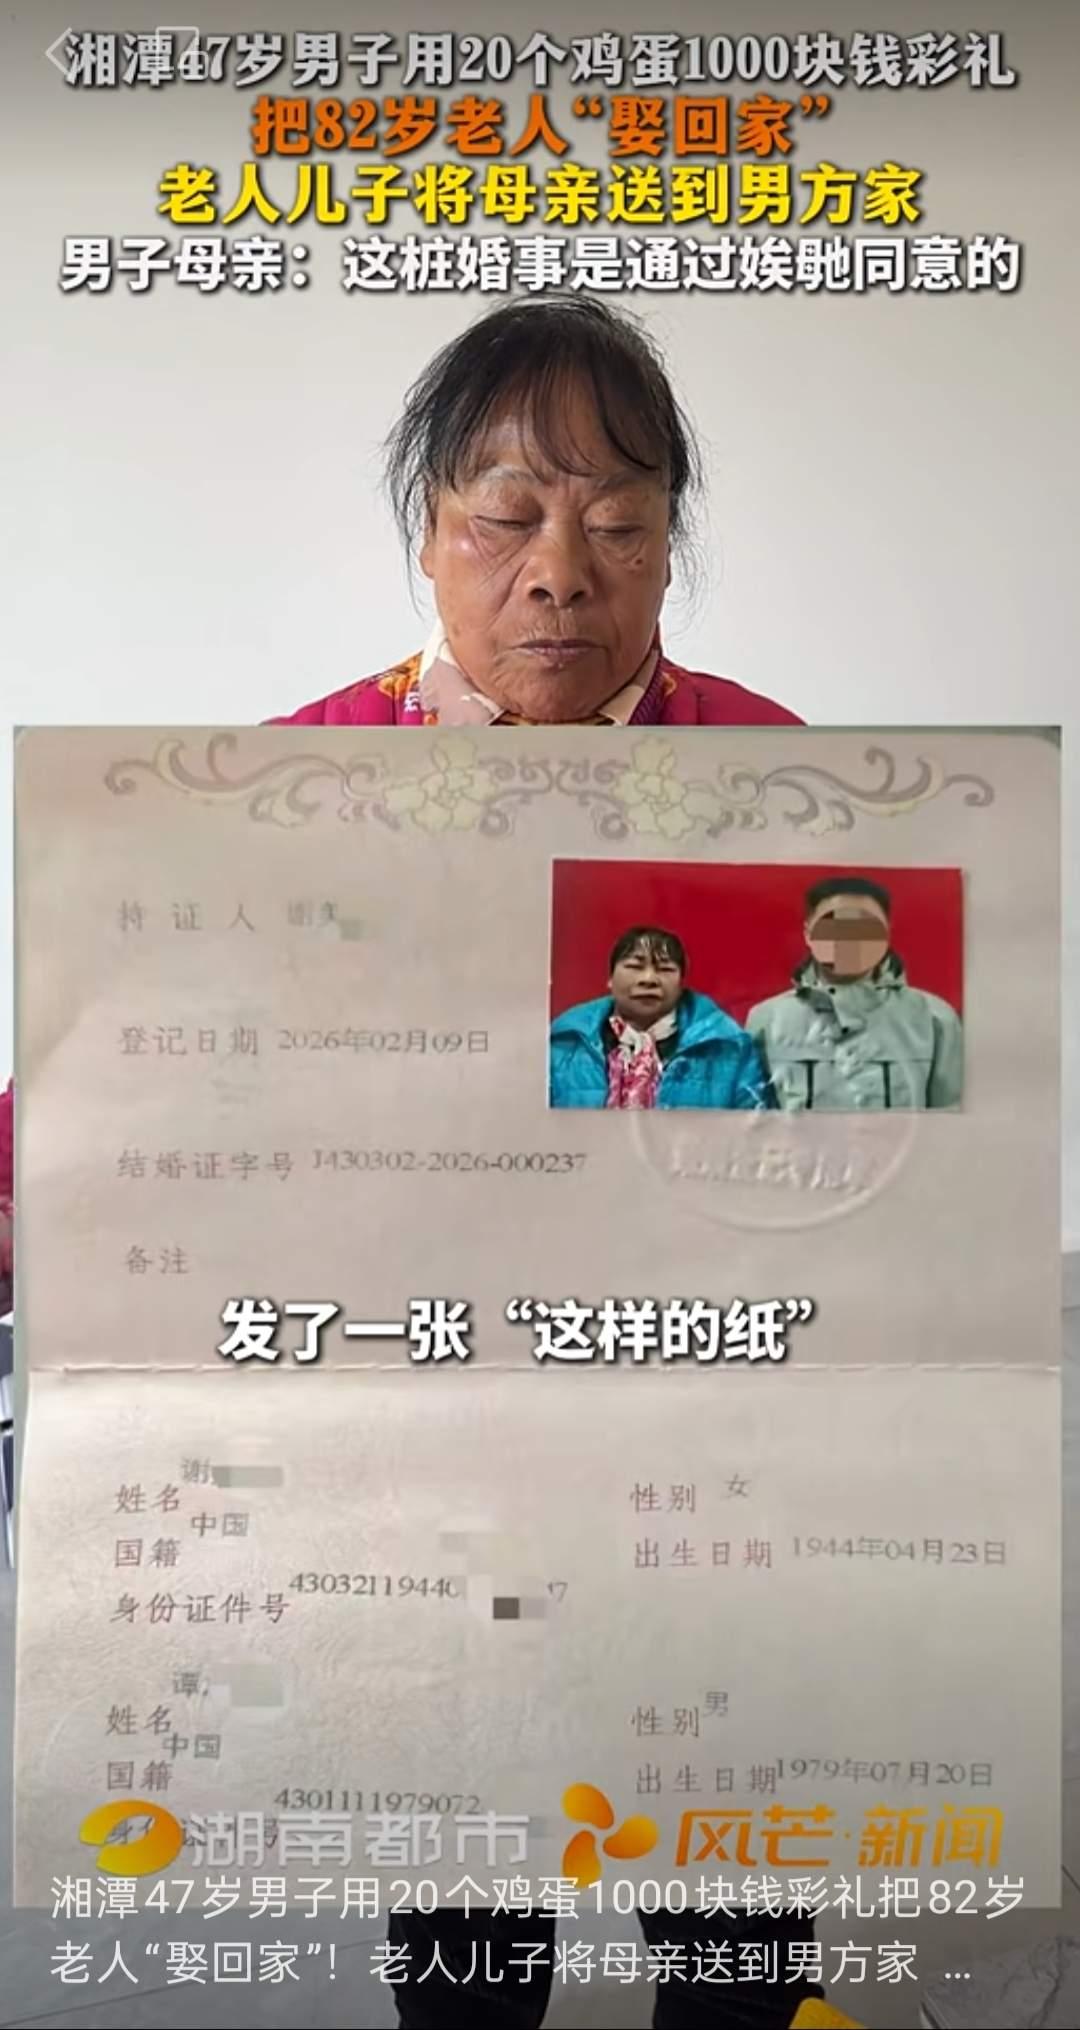 湘潭47岁男子用20个鸡蛋1000块钱彩礼
把82岁老人“娶回家”
老人儿子将母亲送到男方家
男子母亲：这桩婚事是通过娭毑同意的
持证人 谢美
登记日期 2026年02月09日
结婚证字号 J430302-2026-000237
备注
发了一张“这样的纸”
姓名 谢
性别 女
国籍 中国
出生日期 1944年04月23日
身份证件号
姓名 谭
性别 男
国籍 中国
出生日期 1979年07月20日
湖南都市 风芒·新闻
湘潭47岁男子用20个鸡蛋1000块钱彩礼把82岁
老人“娶回家”！老人儿子将母亲送到男方家 ...